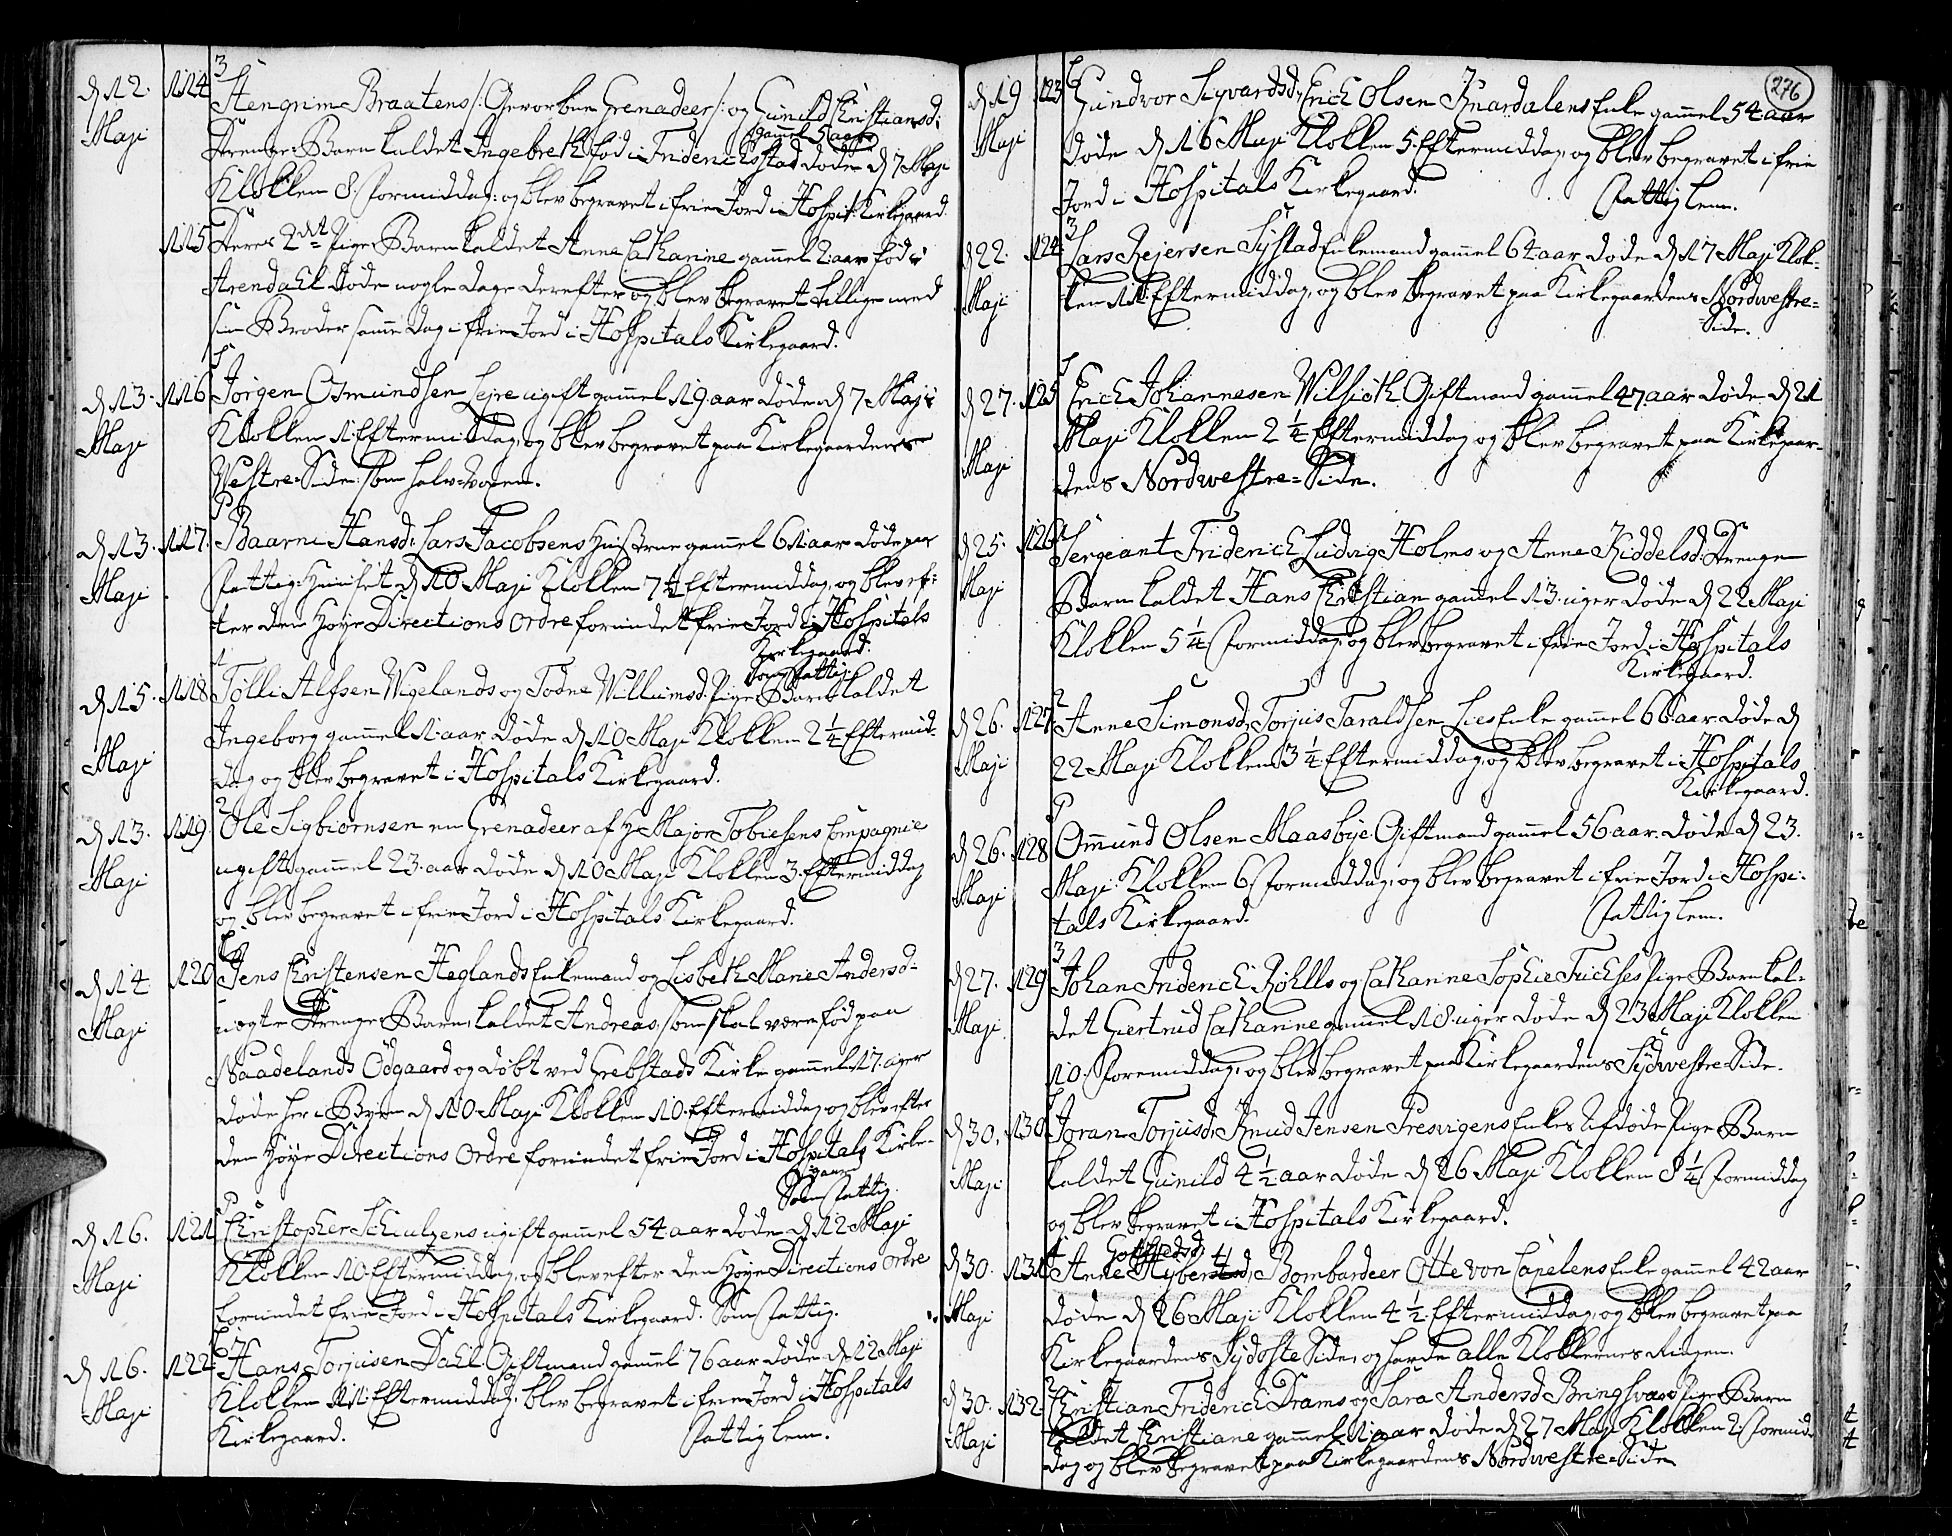 d 12. Maji 114 3
Stengrim Braatens /: Gevorben Grenadeer /: og Gunild Christiansd:
Drenge Barn kaldet Ingebreth fød i Friderichsstad gammel 5 aar døde d 7 Maji
Klokken 8. Formiddag: og blev begravet i frie Jord i Hospit: Kirkegaard.
115 Deres 2det Pige Barn kaldet Anne Catharine gammel 2 aar fød i
Arendahl døde nogle Dage derefter og blev begravet tillige med
sin Broder samme Dag i frie Jord i Hospitals Kirkegaard.
d 13. Maji 116
Jørgen Osmundsen Leire ugift gammel 19 aar døde d 7 Maji
Klokken 1 Eftermiddag, og blev begravet paa Kirkegaardens
Vestre Side som halv-voxen.
d 13. Maji 117.
Baarni Hansd: Lars Jacobsens Hustrue gammel 61 aar døde paa
Fattig-Huuset d 10 Maji Klokken 7 1/2 Eftermiddag, og blev ef-
ter den Høye Directions Ordre forundet frie Jord i Hospitals
Kirkegaard.
Som Fattig.
d 15. Maji 118
Tølli Alfsen Wigelands og Todne Willumsd. Pige Barn kaldet
Ingeborg gammel 1 aar døde d 10 Maji Klokken 2 1/4 Eftermid-
dag og blev begravet i Hospitals Kirkegaard.
d 13. Maji 119. 2
Ole Sigbiornsen en Grenadeer af H Major Tobiesens Compagnie
ugift gammel 23 aar døde d 10 Maji Klokken 3 Eftermiddag
og blev begravet i frie Jord i Hospitals Kirkegaard.
d 14 Maji 120
Jens Christensen Heglands Enkemand og Lisbeth Marie Andersd-
uægte Drenge Barn, kaldet Andreas, som skal være fød paa
Naadelands Ødgaard og døbt ved Grebstads Kirke gammel 17 uger
døde her i Byen d 10 Maji Klokken 10. Eftermiddag og blev efter
den Høye Directions Ordre forundet frie Jord i Hospitals Kirke-
gaard
Som Fattig.
d 16. Maji 121
Christopher Schutzens ugift gammel 54 aar døde d 12 Maji
Klokken 10 Eftermiddag, og blev efter den Høye Directions Ordre
forundet frie Jord i Hospitals Kirkegaard. Som Fattig.
d 16. Maji 122
Hans Torjusen Dahl Giftmand gammel 76 aar døde d 12 Maji
Klokken 11 Eftermiddag, blev begravet i frie Jord i Hospitals
Kirkegaard. Fattig lem.
276
d 19 Maji 123
Gundvor Sigvardsd, Erich Olsen Knardalens Enke gammel 54 aar
døde d 16 Maji Klokken 5. Eftermiddag, og blev begravet i frie
Jord i Hospitals Kirkegaard. Fattig lem.
d 22. Maji 124 3
Lars Rejersen Sijstad Enkemand gammel 64 aar døde d 17 Maji Klok-
ken 11 Eftermiddag, og blev begravet paa Kirkegaardens Nordwestre-
Side.
d 27. Maji 125
Erich Johannesen Willsiøth Giftmand gammel 47 aar døde d 21
Maji Klokken 2 1/4 Eftermiddag og blev begravet paa Kirkegaar-
dens Nordwestre-Side.
d 25. Maji 126
Sergeant Friderich Ludvig Holms og Anne Kiddelsd: Drenge
Barn kaldet Hans Christian gammel 13 uger døde d 22 Maji
Klokken 5 1/4 Formiddag, og blev begravet i frie Jord i Hospitals
Kirkegaard.
d 26. Maji 127 2
Anne Simonsd, Torjus Taraldsen Lies Enke gammel 66 aar døde d
22 Maji Klokken 3 1/4 Eftermiddag, og blev begravet i Hospitals
Kirkegaard.
d 26. Maji 128
Ommund Olsen Maasbye Giftmand gammel 56 aar. døde d 23.
Maji Klokken 6 Formiddag, og blev begravet i frie Jord i Hospi-
tals Kirkegaard. Fattig lem.
d 27. Maji 129 3
Johan Friderich Røhlls og Catharine Sophie Pige Barn kal-
det Giertrud Catharine gammel 18 uger døde d 23 Maji Klokken
10. Foremiddag, og blev begravet paa Kirkegaardens Sydwestre Side.
d 30. Maji 130
Joran Torjusd, Knud Jensen Presvigens Enkes Afdøde Pige Barn
kaldet Gunild 4 1/2 aar døde d 26 Maji Klokken 8 1/4 Formiddag
og blev begravet i Hospitals Kirkegaard.
d 30. Maji 131
Anne Bombardeer Otte von Capelens Enke gammel 42 aar
døde d 26 Maji Klokken 4 1/2 Eftermiddag, og blev begravet paa
Kirkegaardens Sydoste Side, og havde alle Klokkernes Ringen.
d 30. Maji 132 2
Christian Friderich Drams og Sara Andersd Bringsvars Pige Barn
kaldet Christiane gammel 1 aar døde d 27 Maji Klokken 2 Formid-
dag og blev begravet paa Kirkegaardens Nordwestre-Side